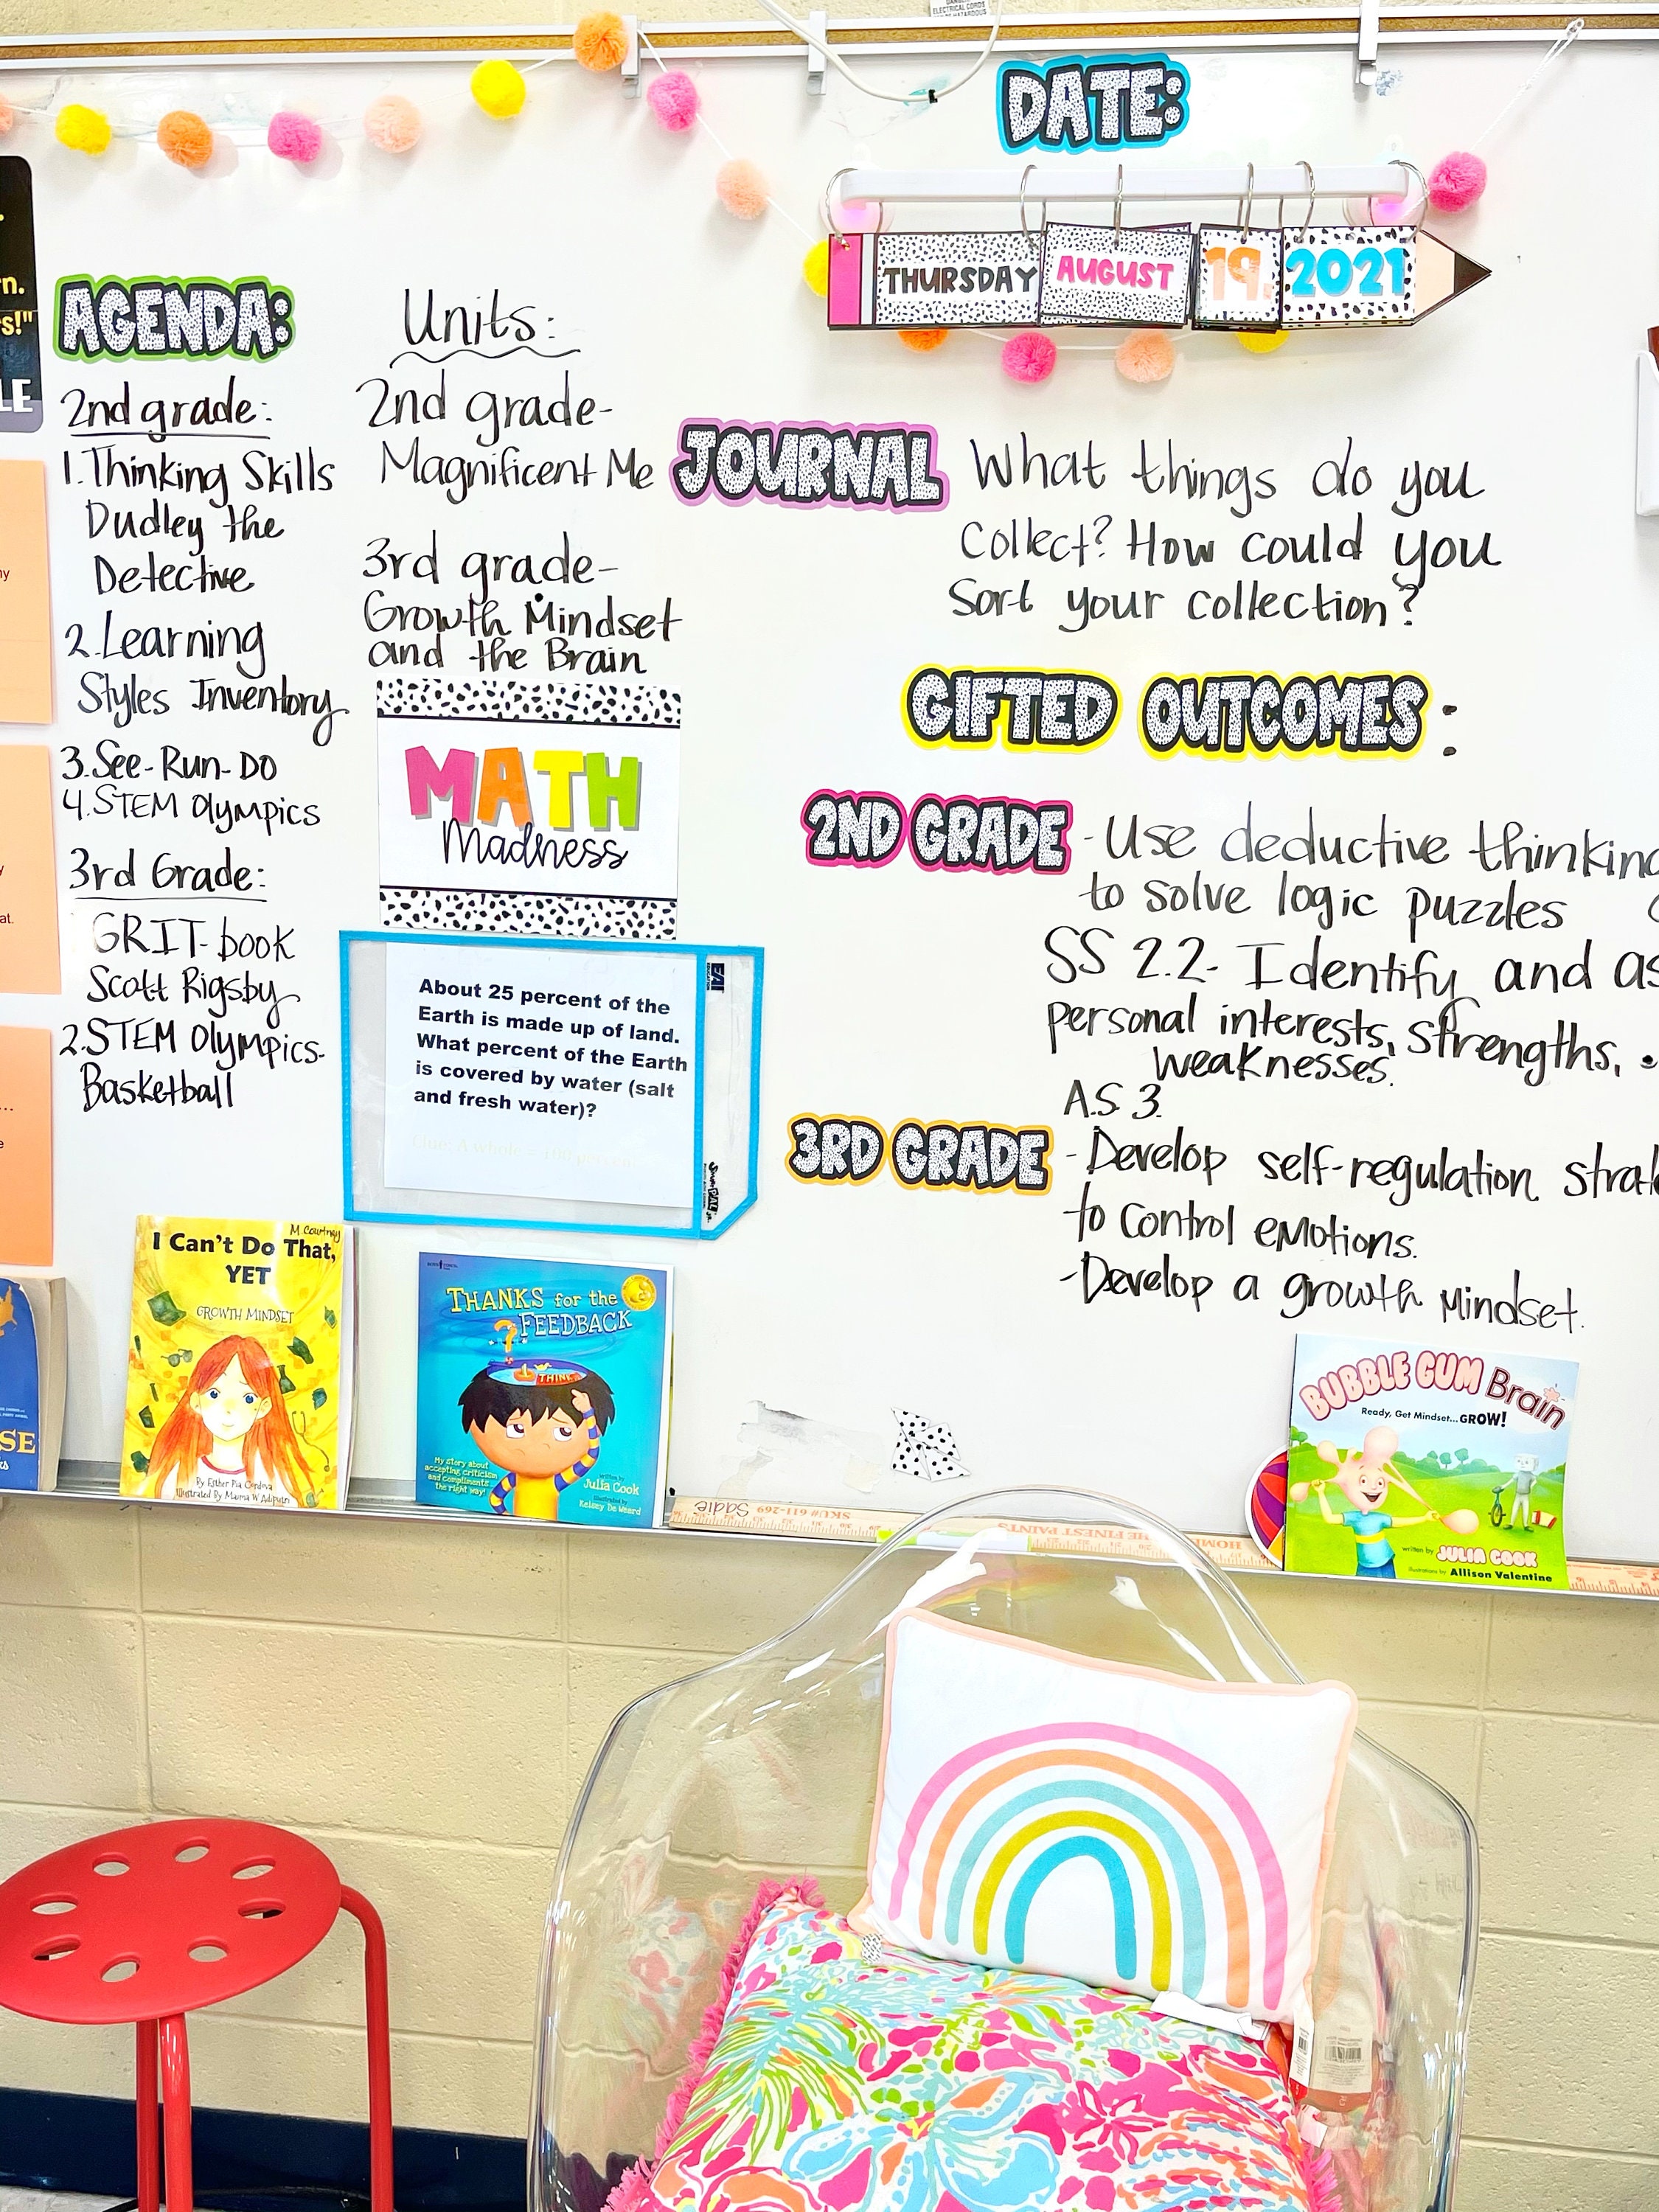 DATE:
THURSDAY AUGUST 19 2021
n.
s!"
LE
AGENDA:
2nd grade:
1. Thinking Skills
Dudley the
Detective
2. Learning
Styles Inventory
3. See-Run-Do
4. STEM Olympics
3rd Grade:
GRIT-book
Scott Rigsby
2. STEM Olympics-
Basketball
Units:
2nd grade-
Magnificent Me
3rd grade-
Growth Mindset
and the Brain
MATH
Madness
EAI
EDUCATION
About 25 percent of the
Earth is made up of land.
What percent of the Earth
is covered by water (salt
and fresh water)?
JOURNAL What things do you
Collect? How could you
Sort your collection?
GIFTED OUTCOMES:
2ND GRADE - Use deductive thinking
to solve logic puzzles
SS 2.2- Identify and as
personal interests, strengths,
weaknesses.
A.S 3.
3RD GRADE - Develop self-regulation strat
to control emotions.
- Develop a growth mindset.
M Courtney
I Can't Do That,
YET
GROWTH MINDSET
By Esther Pia Cordova
Illustrated By Maima W Adiputri
THANKS for the
FEEDBACK
THINK
My story about
accepting criticism
and compliments
the right way!
Written by
Julia Cook
Illustrated by
Kelsey De Weerd
SE
Sadie
SKU# 611-269
THE FINEST PAINTS
HOM
BUBBLE GUM Brain
Ready, Get Mindset...GROW!
written by JULIA COOK
illustrations by Allison Valentine